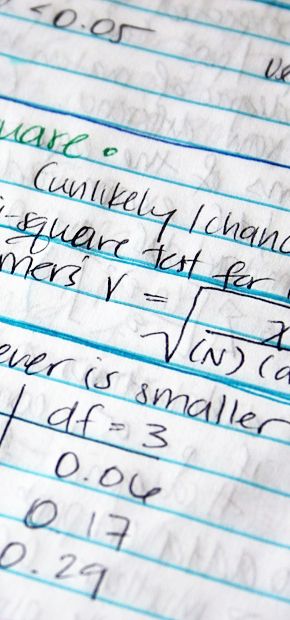 <0.05
uare.
(unlikely / chanc
-square test for
mers' V = √
(N)
ever is smaller
df = 3
0.06
0.17
0.29